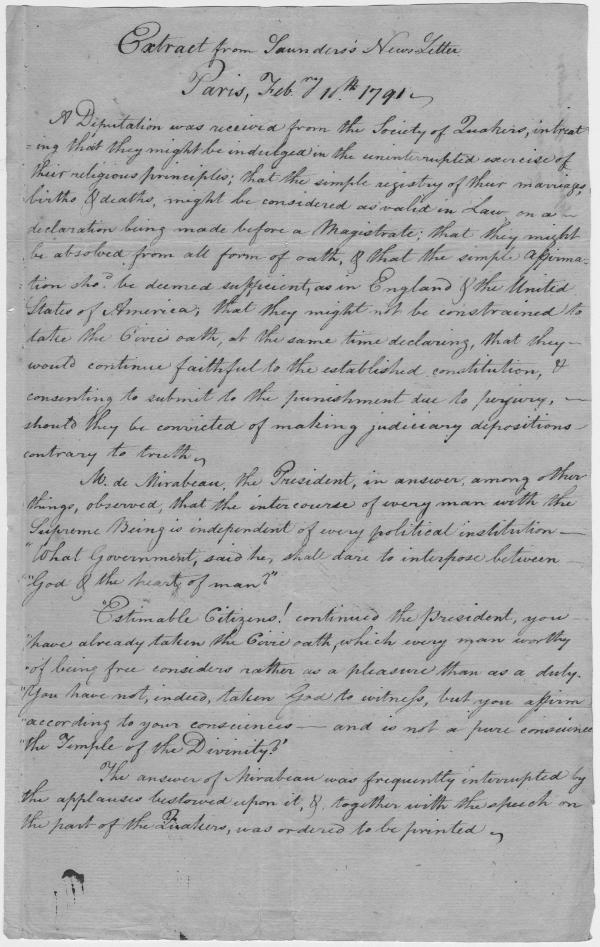 Extract from Saunders's News Letter
Paris, Feb.ry 10.th 1791
A Deputation was received from the Society of Quakers, intreat
=ing that they might be indulged in the uninterrupted exercise of
their religious principles; that the simple registry of their marriages,
births & deaths, might be considered as valid in Law, on a
declaration being made before a Magistrate; that they might
be absolved from all form of oath, & that the simple affirma-
tion sho.d be deemed sufficient, as in England & the United
States of America; that they might not be constrained to
take the Civic oath, at the same time declaring, that they
would continue faithful to the established constitution, &
consenting to submit to the punishment due to perjury, —
should they be convicted of making judiciary depositions
contrary to truth
M. de Mirabeau, the President, in answer, among other
things, observed, that the intercourse of every man with the
Supreme Being is independent of every political institution —
"What Government, said he, shall dare to interpose between —
"God & the heart of man?"
"Estimable Citizens! continued the president, you
"have already taken the Civic oath, which every man worthy
"of being free considers rather as a pleasure than as a duty.
"You have not, indeed, taken God to witness, but you affirm
"according to your consciences — and is not a pure conscience
"the Temple of the Divinity?"
The answer of Mirabeau was frequently interrupted by
the applauses bestowed upon it, & together with the speech on
the part of the Quakers, was ordered to be printed